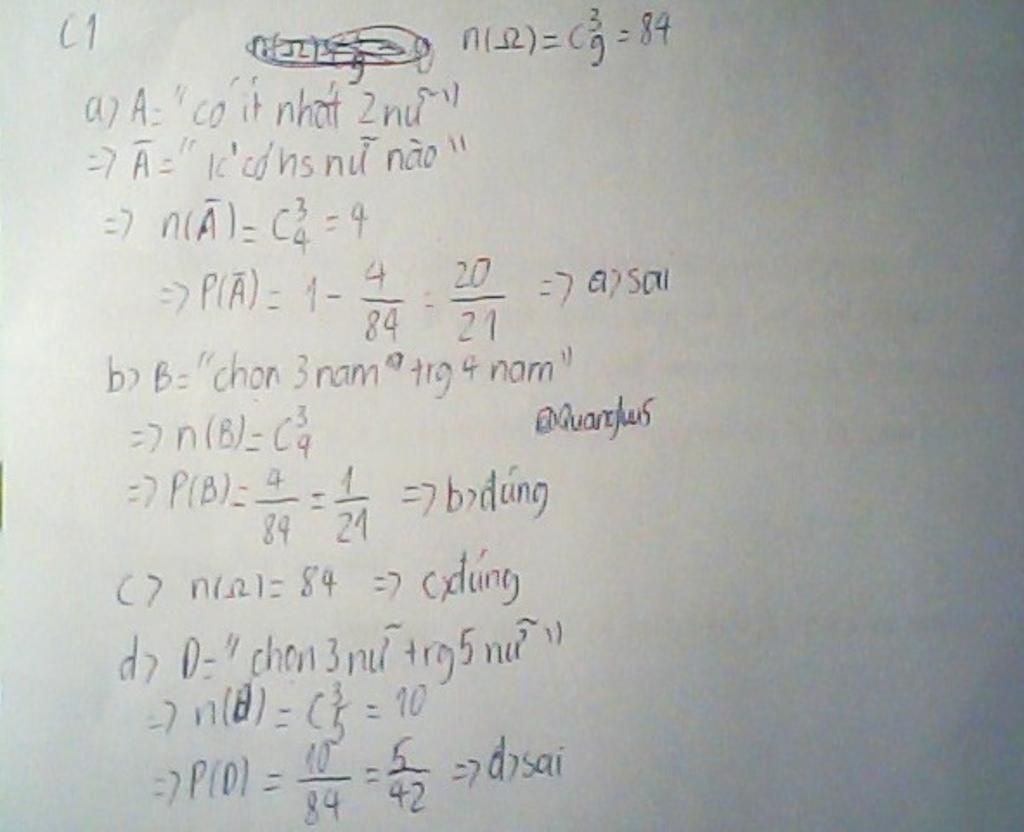 C1 n(Ω) = C³₉ = 84
a) A = "có ít nhất 2 nữ"
=> Ā = "k có hs nữ nào"
=> n(Ā) = C³₄ = 4
=> P(Ā) = 1 - 4/84 = 20/21 => a) sai
b) B = "chọn 3 nam trg 4 nam"
=> n(B) = C³₄
=> P(B) = 4/84 = 1/21 => b) đúng
c) n(Ω) = 84 => c) đúng
d) D = "chọn 3 nữ trg 5 nữ"
=> n(D) = C³₅ = 10
=> P(D) = 10/84 = 5/42 => d) sai